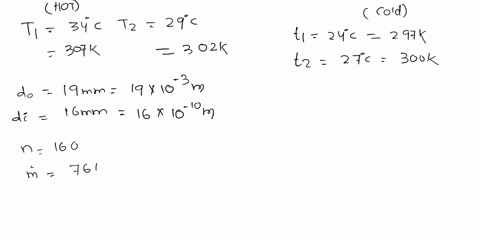 (HOT)
T₁ = 34°c T₂ = 29°c
= 307K = 302K
(Cold)
t₁ = 24°c = 297K
t₂ = 27°c = 300K
do = 19mm = 19 × 10⁻³ m
di = 16mm = 16 × 10⁻¹⁰ m
n = 160
ṁ = 761